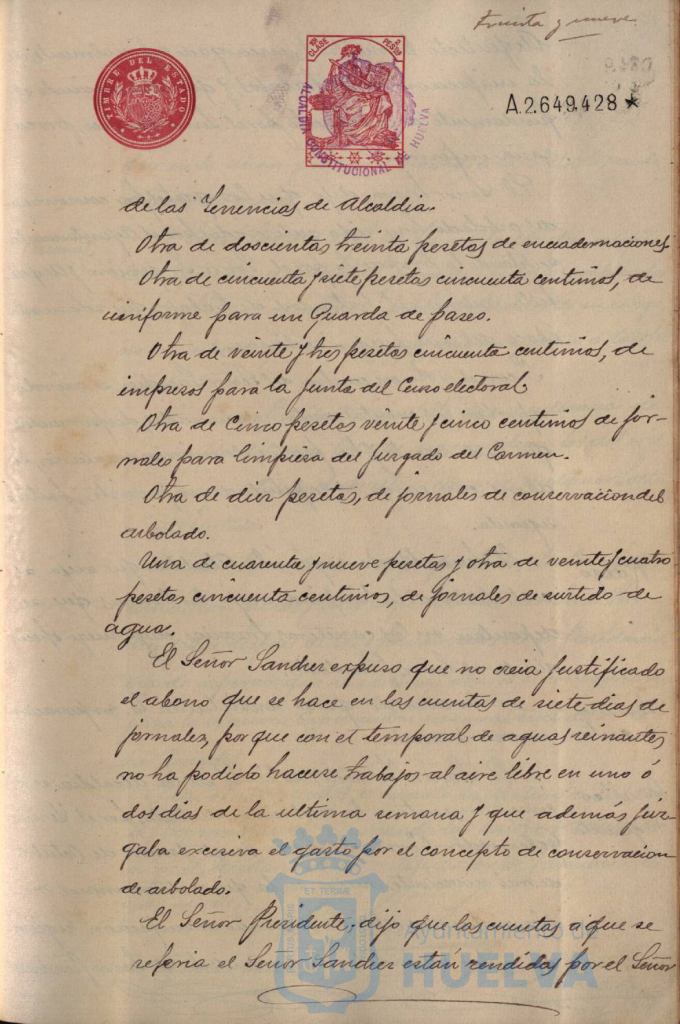 Treinta y nueve
TIMBRE DEL ESTADO
10ª CLASE 2 PESETAS
ALCALDIA CONSTITUCIONAL DE HUELVA
A.2.649.428 ★
de las Tenencias de Alcaldia.
Otra de doscientas treinta pesetas de encuadernaciones.
Otra de cincuenta y siete pesetas cincuenta centimos, de
uniforme para un Guarda de paseo.
Otra de veinte y tres pesetas cincuenta centimos, de
impresos para la Junta del Censo electoral.
Otra de cinco pesetas veinte y cinco centimos de jor-
nales para limpiesa del Juzgado del Carmen.
Otra de diez pesetas, de jornales de conservacion del
arbolado.
Una de cuarenta y nueve pesetas y otra de veinte y cuatro
pesetas cincuenta centimos, de jornales de surtido de
agua.
El Señor Sanchez expuso que no creia justificado
el abono que se hace en las cuentas de siete dias de
jornales, por que con el temporal de aguas reinantes
no ha podido hacerse trabajos al aire libre en uno ó
dos dias de la ultima semana y que además juz-
gaba excesiva el gasto por el concepto de conservacion
de arbolado.
El Señor Presidente, dijo que las cuentas a que se
referia el Señor Sanchez están rendidas por el Señor
Ayuntamiento de
HUELVA